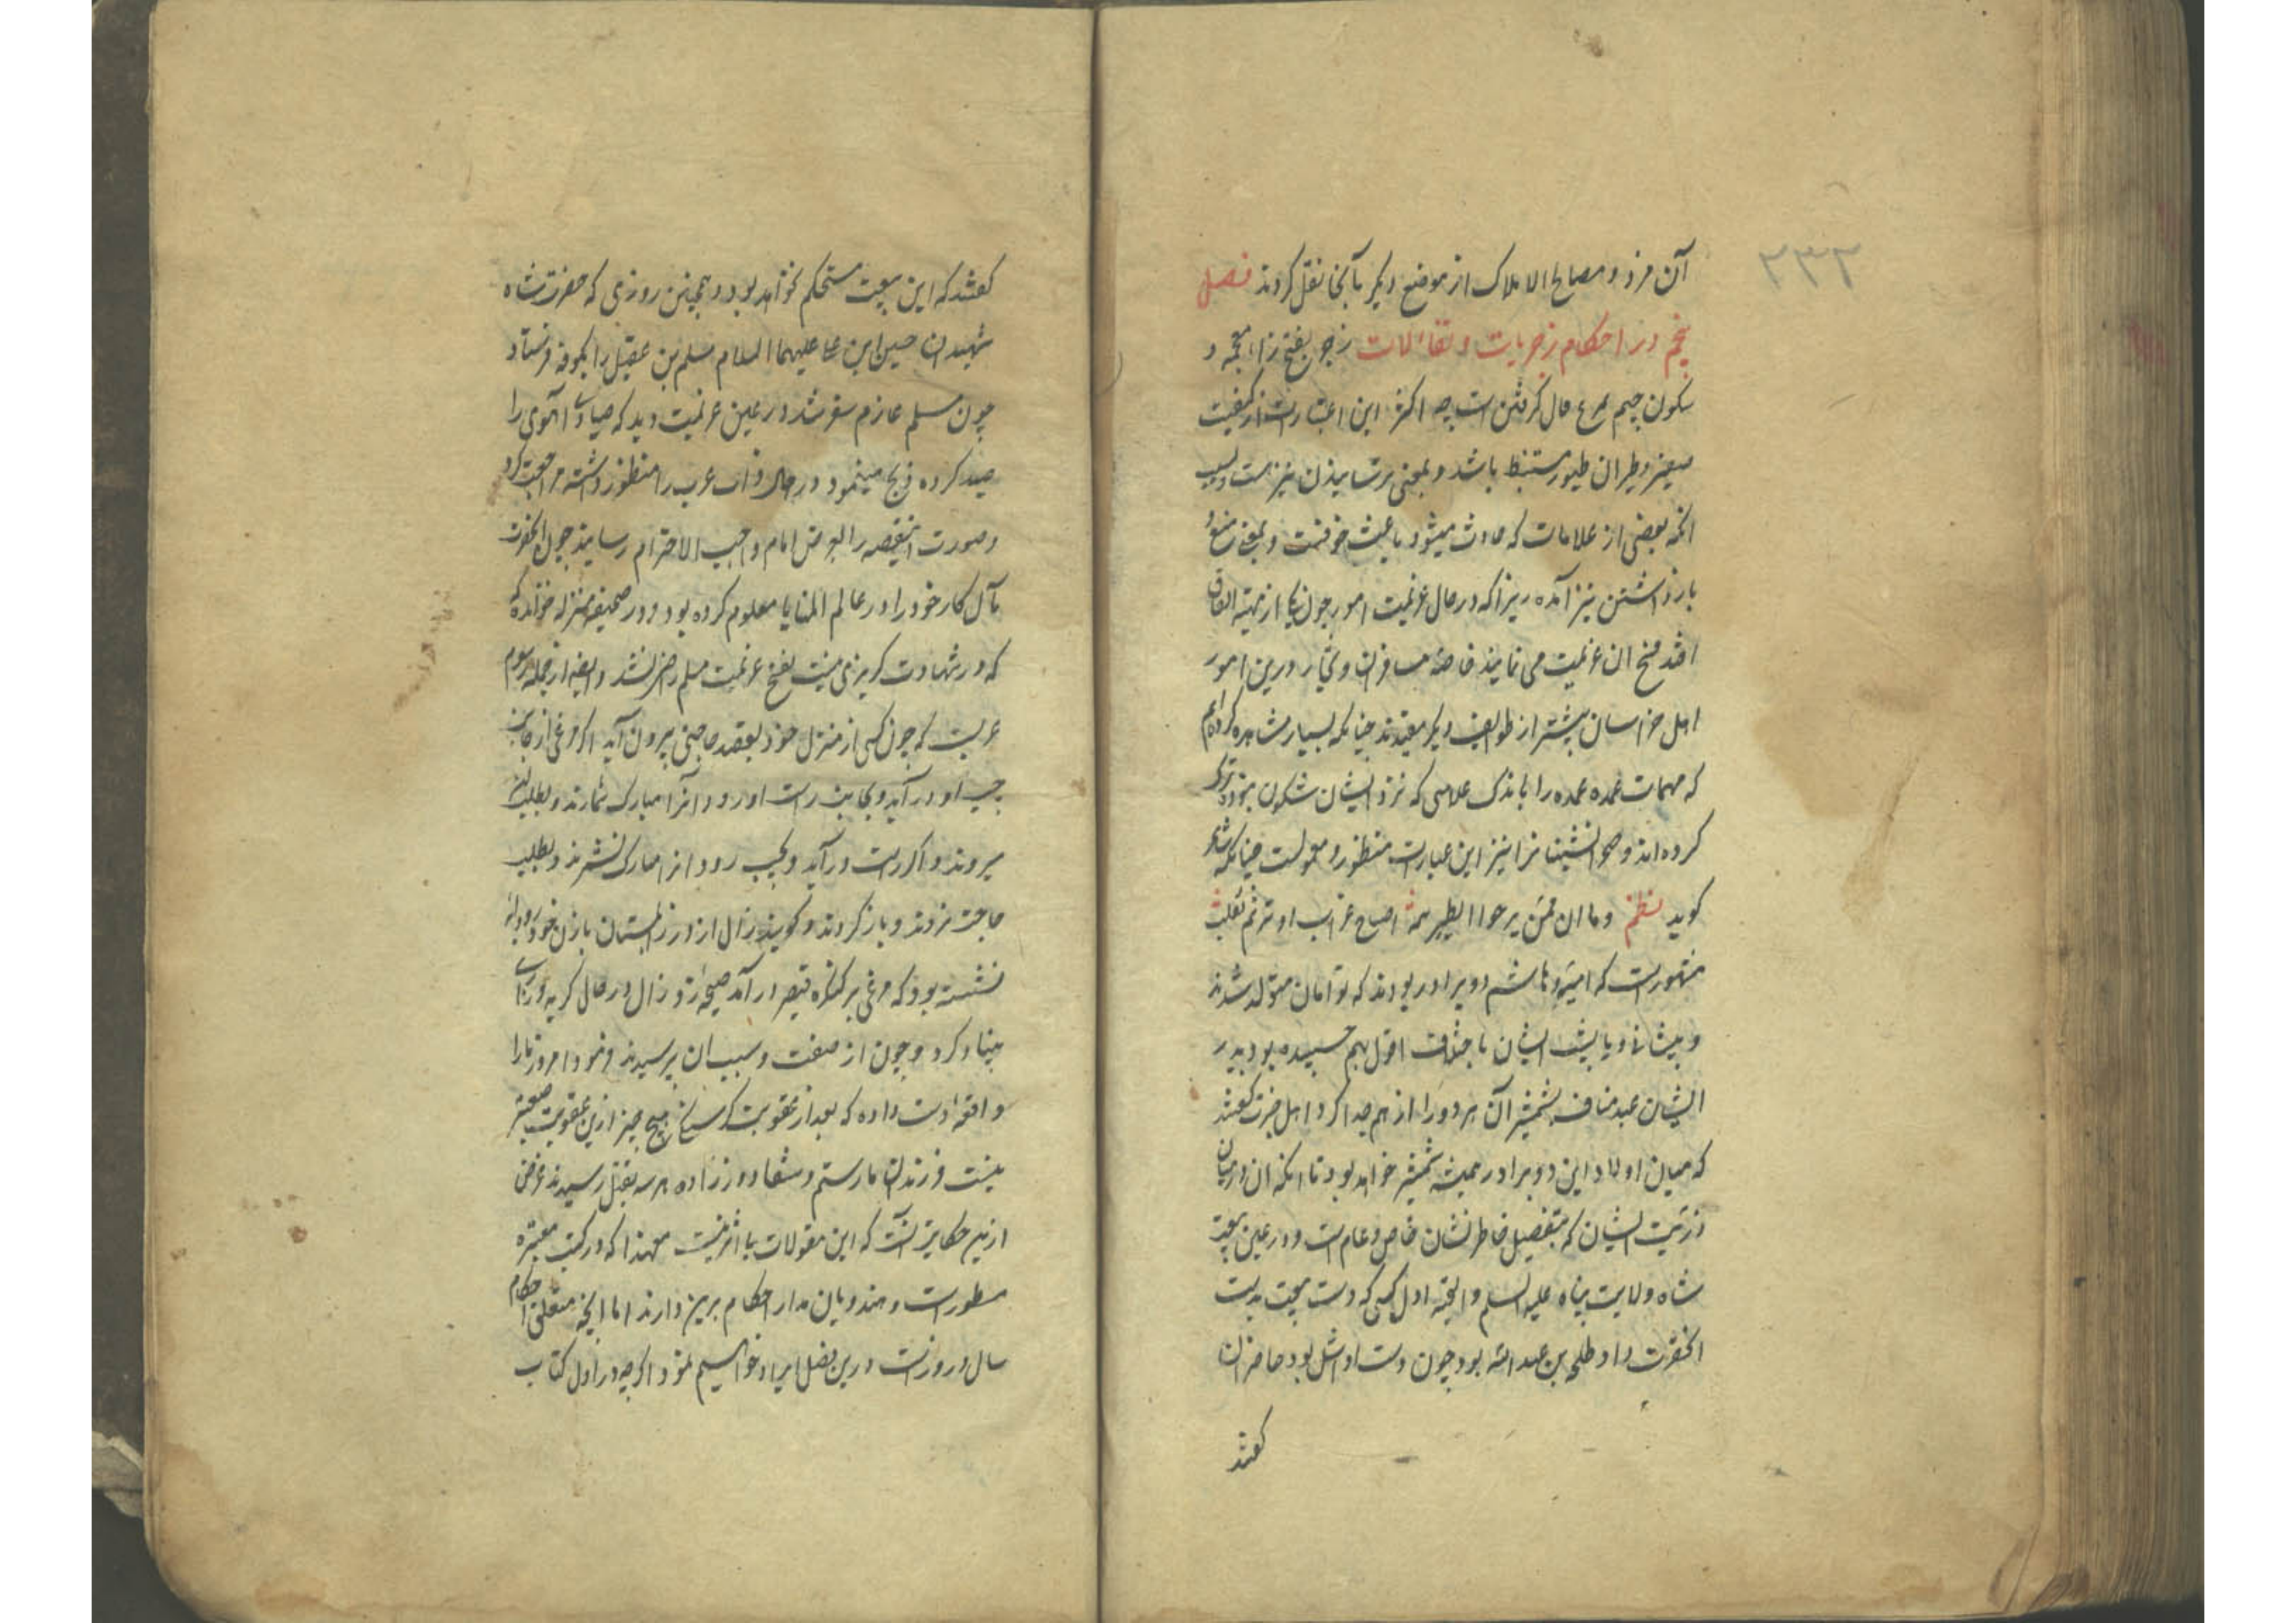 ۲۳۲
آن مرز و مصالح الاملاک از موضع دیگر بآنجا نقل کردند فصل
پنجم در احکام زجریات و تفاٴلات زجر بفتح زاء معجمه و
سکون جیم فال گرفتن است چه اکثر این اعتبارات از کیفیت
صفیر و طیران طیور مستنبط باشد و بمعنی ترسانیدن نیز هست و بسبب
آنکه بعضی از علامات که حادث میشود باعث خوفست و بمعنی منع و
بازداشتن نیز آمده زیرا که در حال عزیمت امور چون یکی از نهیه اتفاق
افتد فسخ ان عزیمت می نمایند خاصه مسافران و تجار و درین امور
اهل خراسان بیشتر از طوایف دیگر مقیدند چنانکه بسیار مشاهده کرده‌ایم
که مهمات عمده عمده را باندک علامتی که نزد ایشان شکون نبود ترک
کرده‌اند و صحرانشینانرا نیز این عبارات منظور و معمولست چنانکه شاعر
کوید نظم وما ان ممن یزجر الطیر همه اصاح غراب او ترنم ثعلب
مشهورست که امیه و هاشم دو برادر بودند که توامان متولد شدند
و پیشانی و یا پشت ایشان باختلاف اقوال بهم چسپیده بود پدر
ایشان عبد مناف بشمشیر آن هر دو را از هم جدا کرد اهل خبرت گفتند
که میان اولاد این دو برادر همیشه شمشیر خواهد بود تا آنکه ان در میان
ذریت ایشان که بتفصیل خاطرنشان خاص و عام است و در عین بیعت
شاه ولایت پناه علیه السلام والتحیه اول کسی که دست بیعت بدست
آنحضرت داد طلحه بن عبد الله بود چون دست او اشل بود حاضران
گفتند
گفتند که این بیعت مستحکم نخواهد بود و همچنین روزی که حضرت شاه
شهیدان حسین ابن علی علیهما السلام مسلم بن عقیل را بکوفه فرستاد
چون مسلم عازم سفر شد در عین عزیمت دید که صیادی آهوی را
صید کرده ذبح مینمود در حال داب عرب را منظور داشته مراجعت کرد
و صورت اینقصه را بعرض امام واجب الاحترام رسانید چون آنحضرت
مآل کار خود را در عالم المنایا معلوم کرده بود و در صحیفه منزله خوانده
که در شهادت گریزی نیست بفسخ عزیمت مسلم رضی نشد و ایضا از جمله رسوم
عربست که چون کسی از منزل خود بقصد حاجتی بیرون آید اکر مرغی از جانب
چپ او در آید و بجانب راست او رود آنرا مبارک شمارند و بطلب
میروند و اگر از راست در آید و بچپ رود انرا مبارک نشمرند و بطلب
حاجت نروند و باز گردند و گویند زال زر در زابلستان با زن خود رودابه
نشسته بود که مرغی بر کنکره قصر در آمد صیحه زد زال در حال گریه و زاری
بنیاد کرد و چون از صفت و سبب ان پرسیدند فرمود امروز ما را
واقعه دست داده که بعد از عقوبت هیچ چیز ازین عقوبت صعبتر
نیست فرزندان ما رستم و شغاد و زواره هر سه بقتل رسیدند غرض
ازین حکایت آنست که این مقولات بی اثر نیست معهذا که در کتب معتبره
مسطورست و هندویان مدار احکام برین دارند اما آنچه متعلق احکام
سال و روزست درین فصل ایراد خواهیم نمود اگرچه در اول کتاب